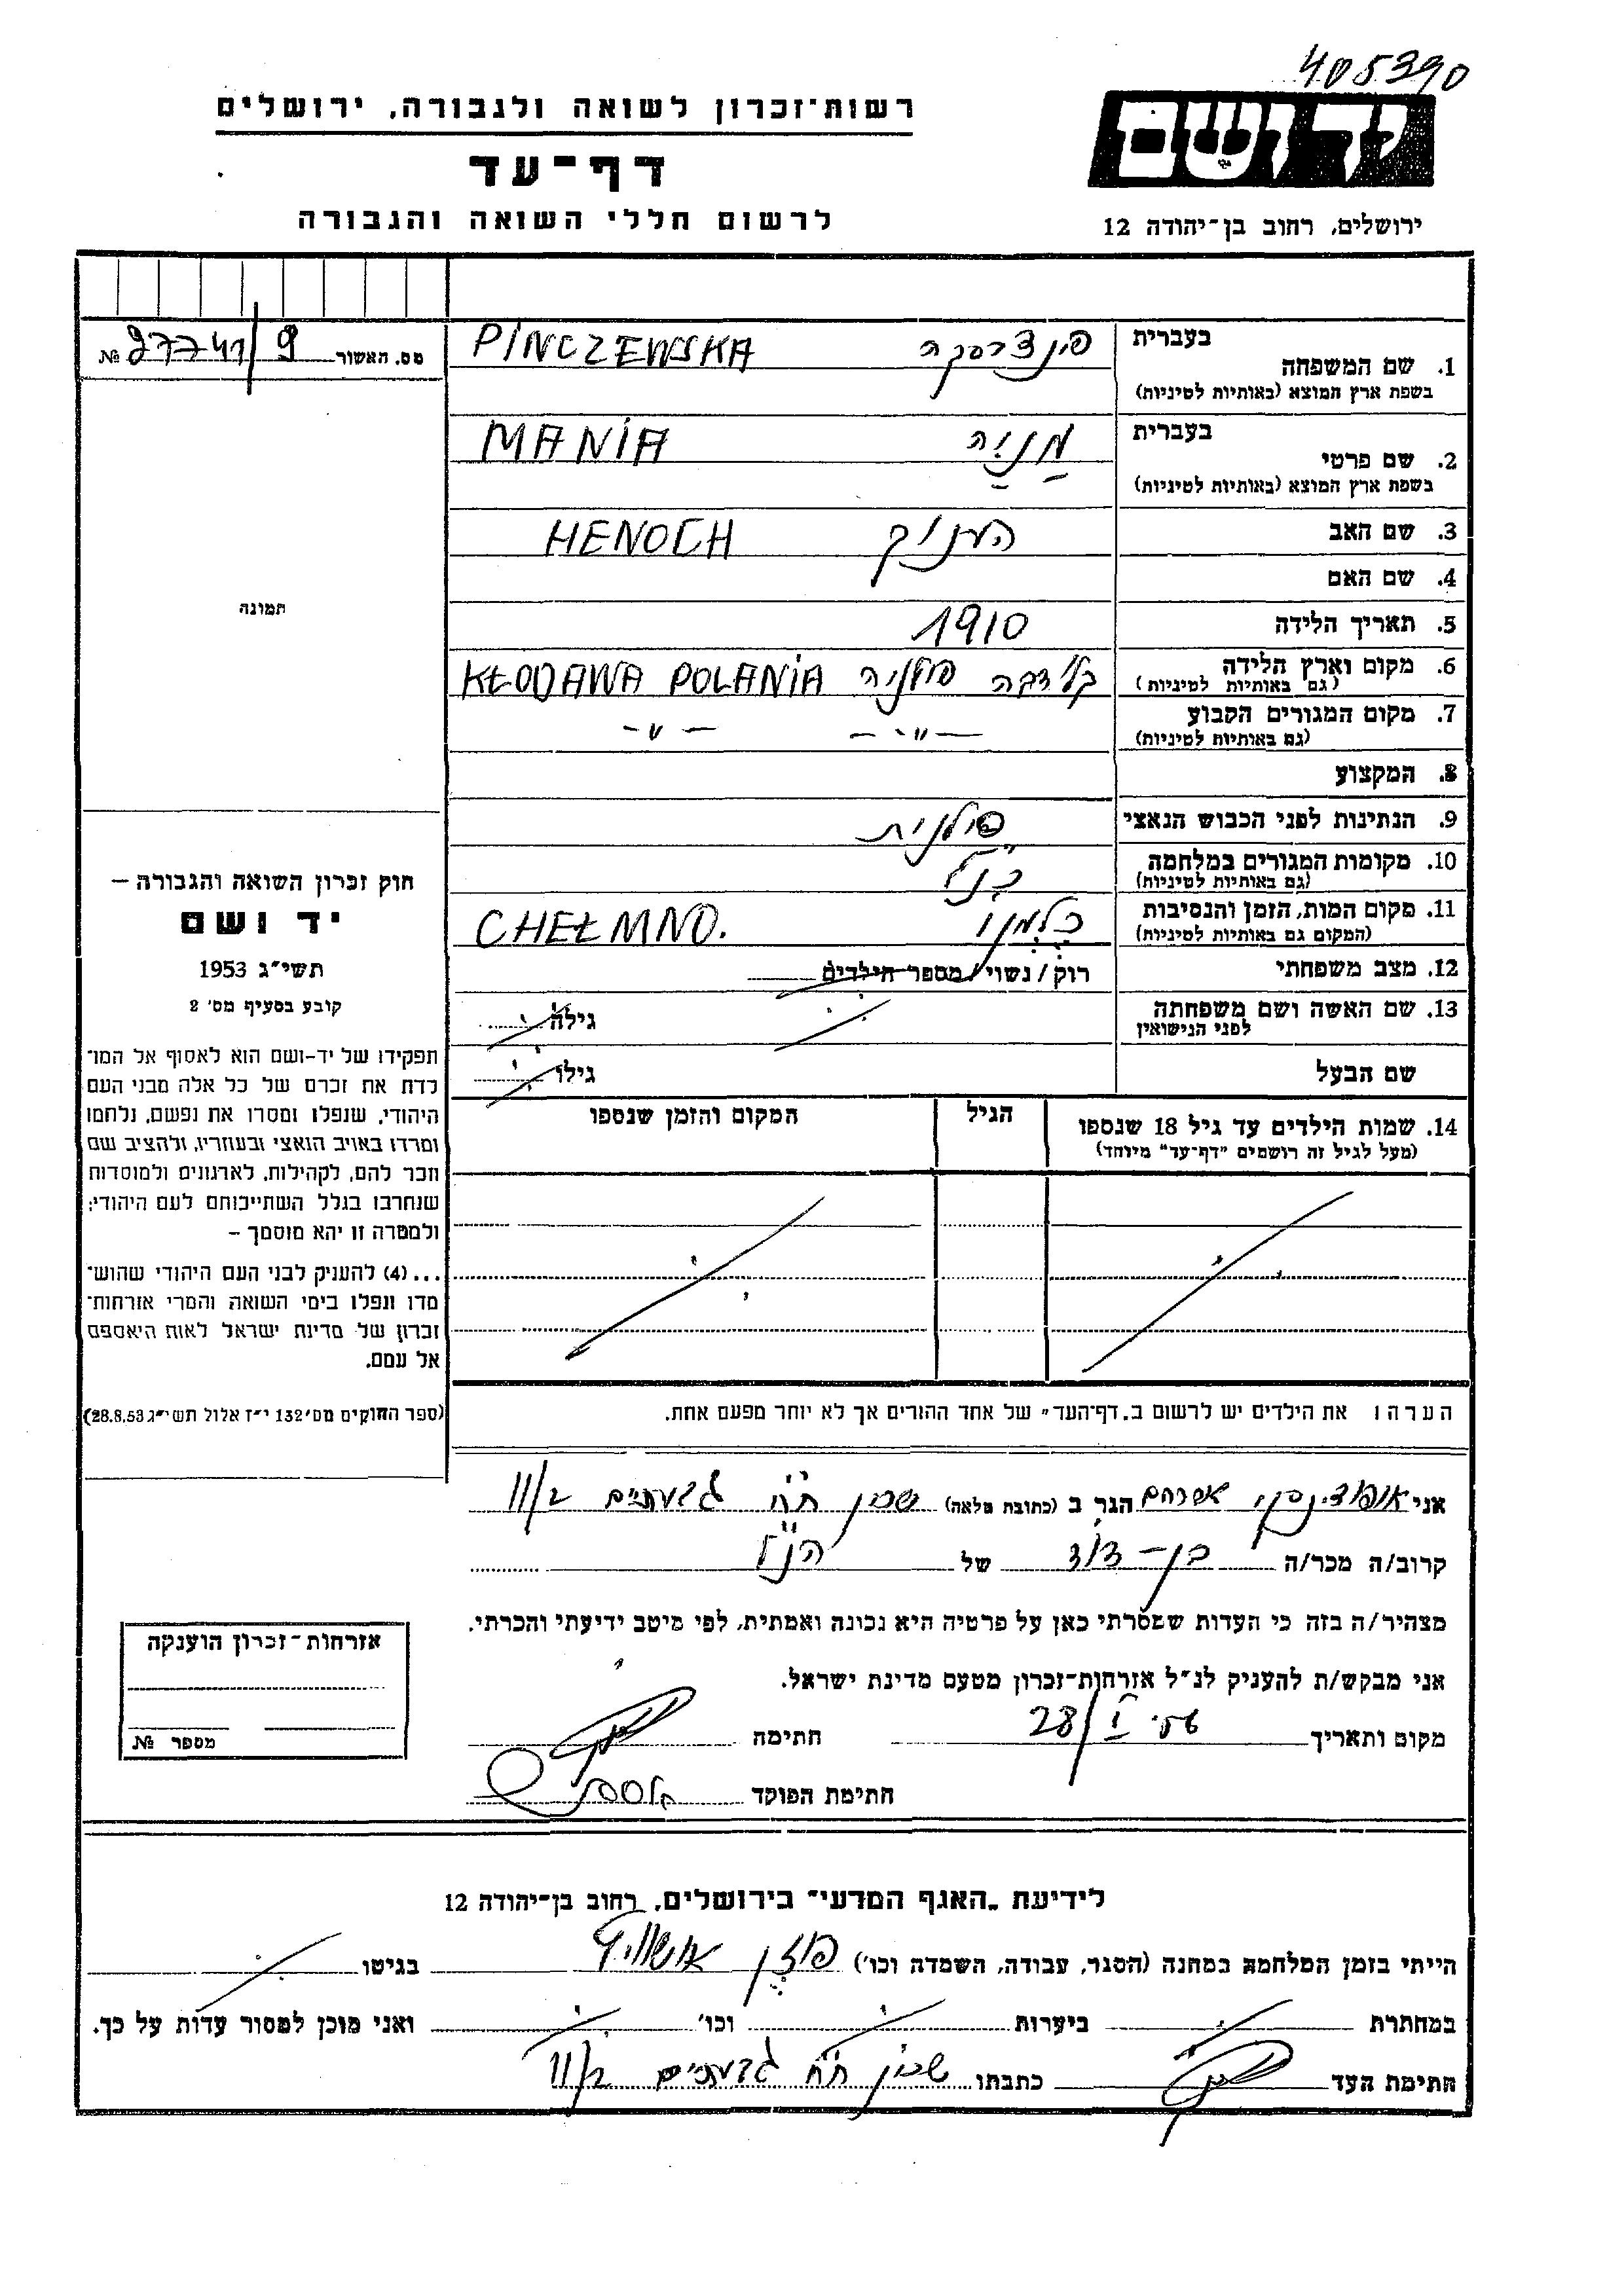 405390
רשות־זכרון לשואה ולגבורה, ירושלים
יד ושם
דף־עד
לרשום חללי השואה והגבורה
ירושלים, רחוב בן־יהודה 12
בעברית
1. שם המשפחה
בשפת ארץ המוצא (באותיות לטיניות)
PINCZEWSKA
מס. האשור 27741/9 №
בעברית מניה
2. שם פרטי
בשפת ארץ המוצא (באותיות לטיניות)
MANIA
3. שם האב הענוך HENOCH
4. שם האם
תמונה
5. תאריך הלידה 1910
6. מקום וארץ הלידה
(גם באותיות לטיניות)
פולניה KŁODAWA POLANIA
7. מקום המגורים הקבוע
(גם באותיות לטיניות)
— " — — " —
8. המקצוע
9. הנתינות לפני הכבוש הנאצי פולנית
10. מקומות המגורים במלחמה כנ"ל
(גם באותיות לטיניות)
11. מקום המות, הזמן והנסיבות
(המקום גם באותיות לטיניות)
כלמנו CHEŁMNO.
12. מצב משפחתי רוק / נשוי / מספר הילדים
13. שם האשה ושם משפחתה
לפני הנישואין
גילה
שם הבעל גילו
14. שמות הילדים עד גיל 18 שנספו
(מעל לגיל זה רושמים "דף־עד" מיוחד)
הגיל
המקום והזמן שנספו
חוק זכרון השואה והגבורה –
יד ושם
תשי"ג 1953
קובע בסעיף מס' 2
תפקידו של יד-ושם הוא לאסוף אל המו־
לדת את זכרם של כל אלה מבני העם
היהודי, שנפלו ומסרו את נפשם, נלחמו
ומרדו באויב הנאצי ובעוזריו, ולהציב שם
וזכר להם, לקהילות, לארגונים ולמוסדות
שנחרבו בגלל השתייכותם לעם היהודי;
ולמטרה זו יהא מוסמך –
...(4) להעניק לבני העם היהודי שהוש־
מדו ונפלו בימי השואה והמרי אזרחות־
זכרון של מדינת ישראל לאות היאספם
אל עמם.
(ספר החוקים מס' 132 י"ז אלול תשי"ג 28.8.53)
הערה: את הילדים יש לרשום ב„דף־העד" של אחד ההורים אך לא יותר מפעם אחת.
אני אברהם הגר ב (כתובת מלאה) שכון ח"ח גבעתיים 11/2
קרוב/ה מכר/ה בן – דוד של הנ"ל
מצהיר/ה בזה כי העדות שמסרתי כאן על פרטיה היא נכונה ואמתית, לפי מיטב ידיעתי והכרתי.
אני מבקש/ת להעניק לנ"ל אזרחות־זכרון מטעם מדינת ישראל.
מקום ותאריך 28/I חתימה
חתימת הפוקד
אזרחות־זכרון הוענקה
מספר №
לידיעת „האגף המדעי" בירושלים, רחוב בן־יהודה 12
הייתי בזמן המלחמה במחנה (הסגר, עבודה, השמדה וכו') פוזן אושוויץ בגיטו
במחתרת ביערות וכו' ואני מוכן למסור עדות על כך.
חתימת העד כתבתו שכון ח"ח גבעתיים 11/2